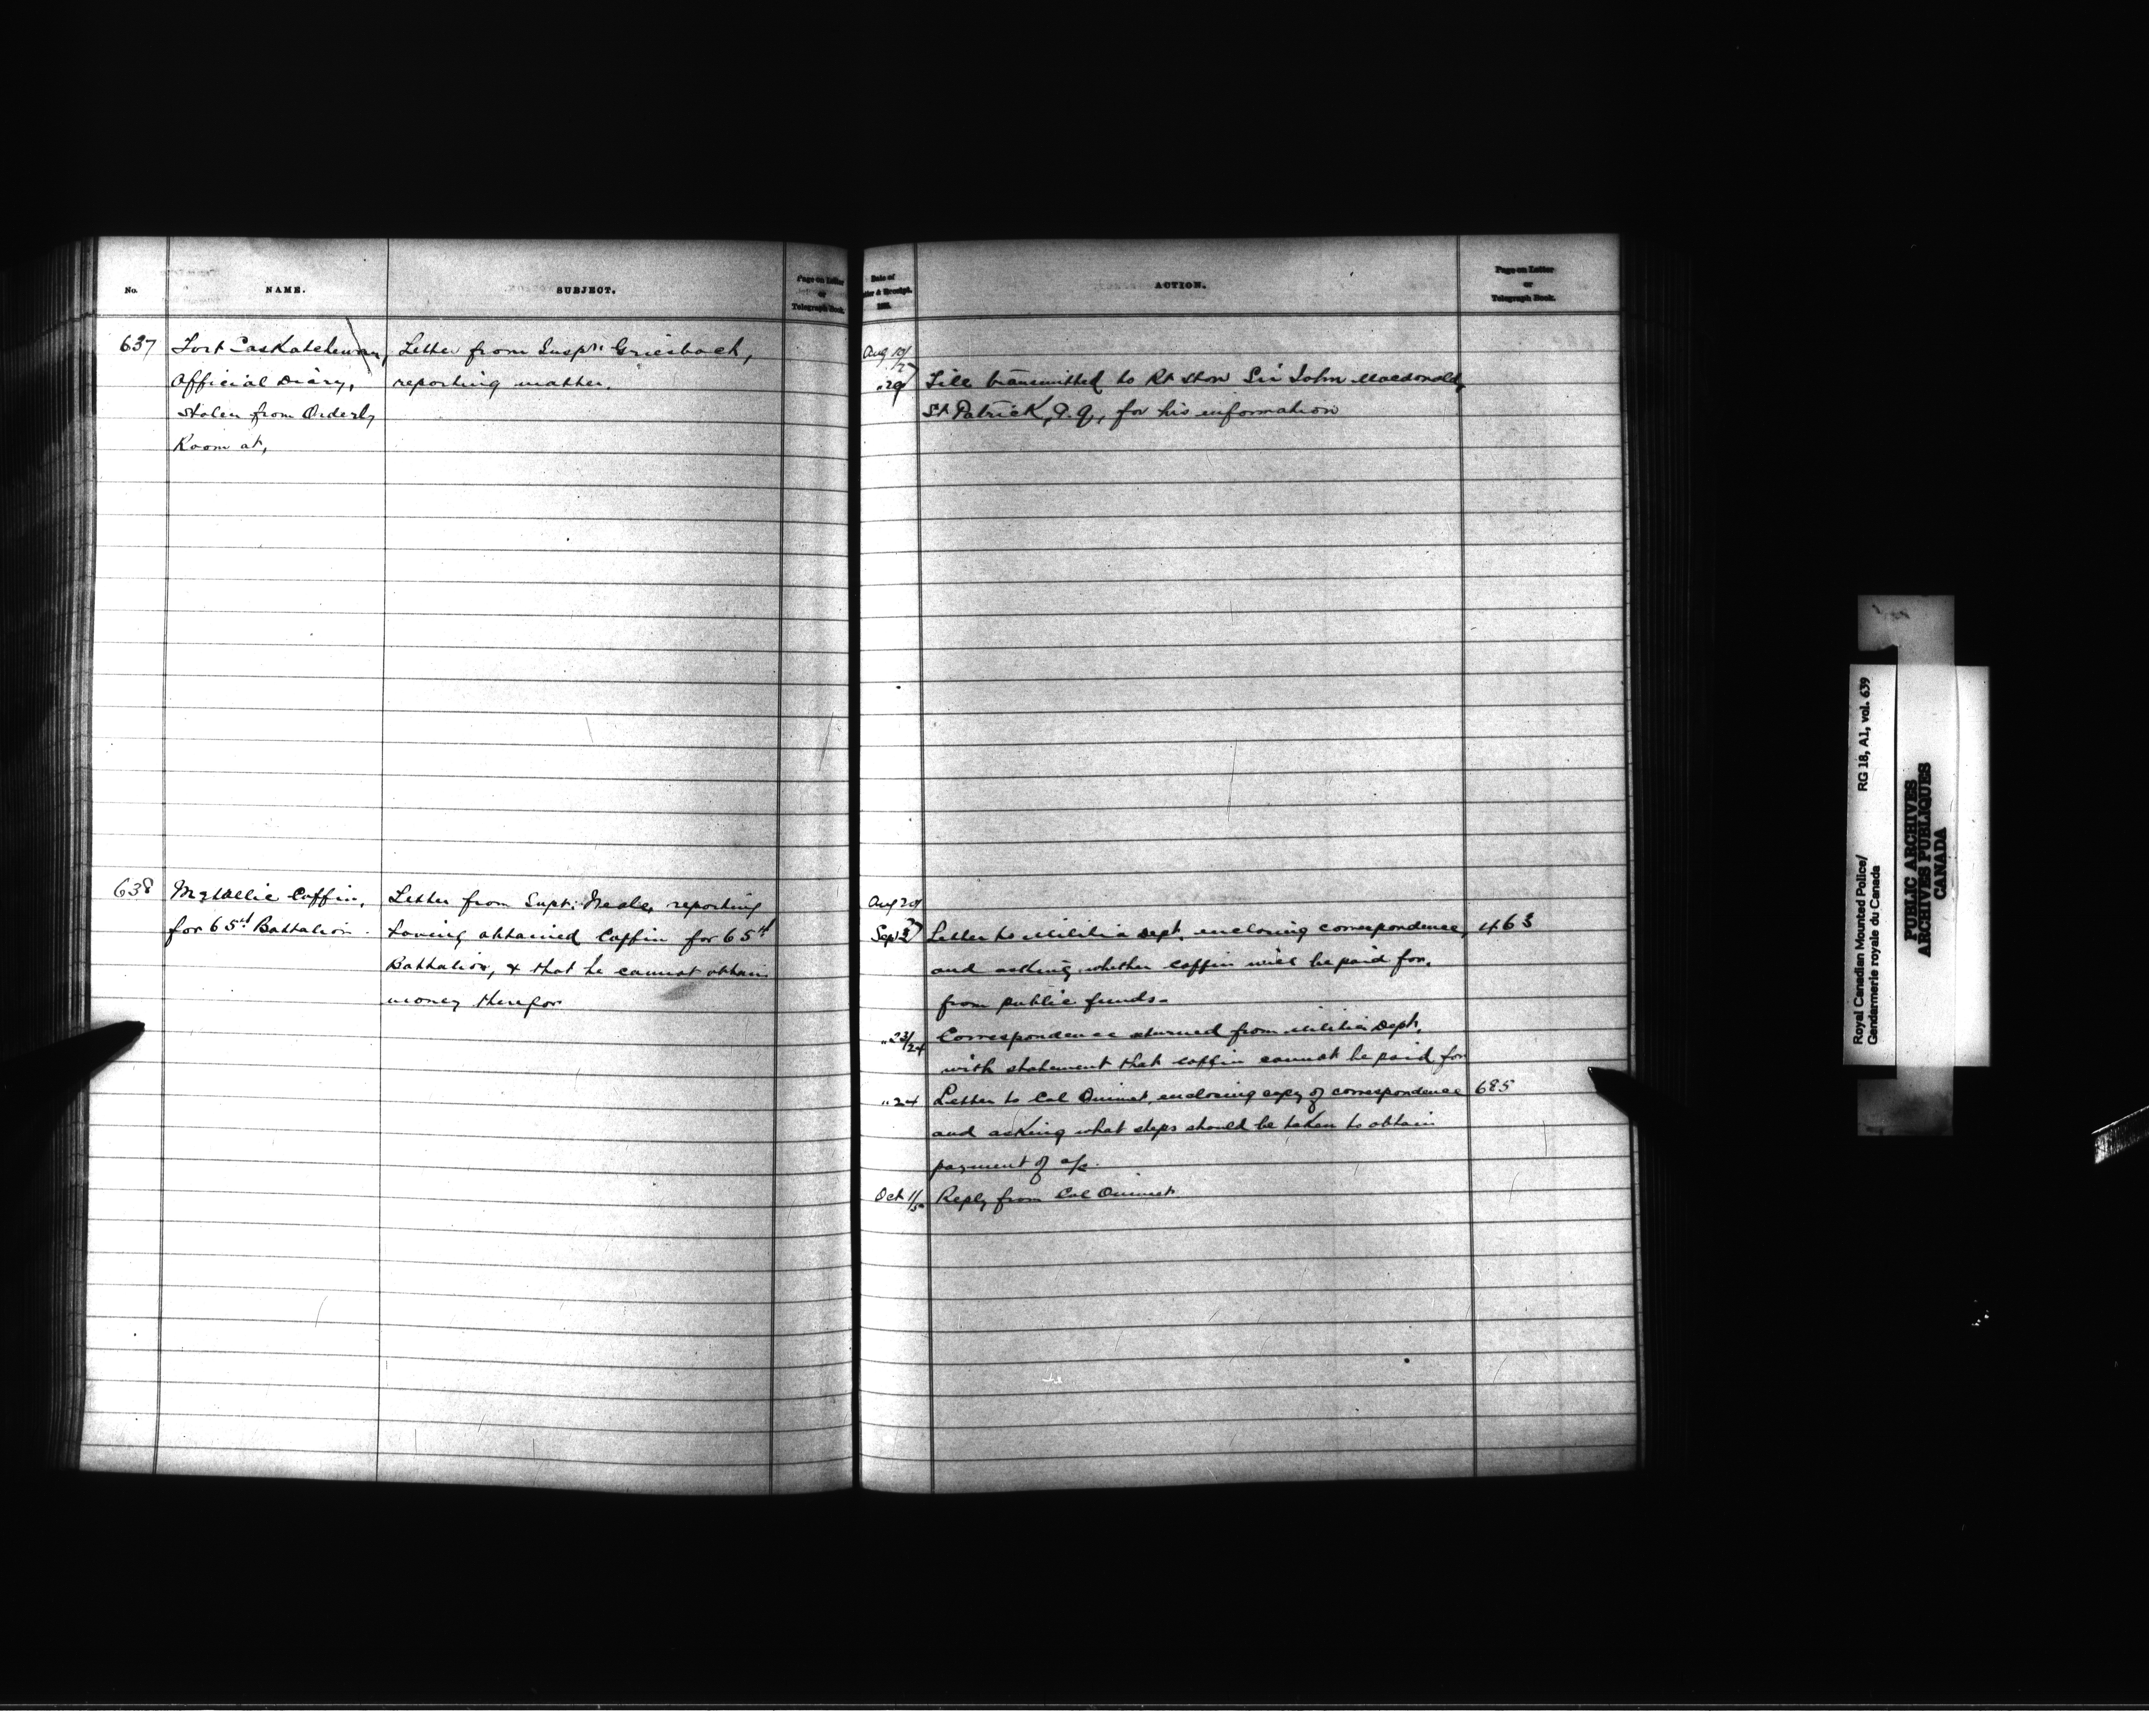 No.
NAME.
SUBJECT.
Page on Letter
or
Telegraph Book.
637
Fort Saskatchewan,
Official Diary,
stolen from Orderly
Room at,
Letter from Inspr: Griesbach,
reporting matter.
638
Metallic Coffin,
for 65th Battalion.
Letter from Supt: Neale, reporting
having obtained Coffin for 65th
Battalion, & that he cannot obtain
money therefor
Date of
Letter & Receipt.
ACTION.
Page on Letter
or
Telegraph Book.
Aug
" 29
File transmitted to Rt Hon Sir John Macdonald,
St Patrick, P.Q., for his information
Aug
Sept 2
Letter to Militia Dept. enclosing correspondence, 463
and asking whether coffin will be paid for,
from public funds.
" 23/24
Correspondence returned from Militia Dept.
with statement that coffin cannot be paid for
" 24
Letter to Col Ouimet, enclosing copy of correspondence 685
and asking what steps should be taken to obtain
payment of a/c.
Oct 1/5
Reply from Col Ouimet
Royal Canadian Mounted Police/ RG 18, A1, vol. 639
Gendarmerie royale du Canada
PUBLIC ARCHIVES
ARCHIVES PUBLIQUES
CANADA